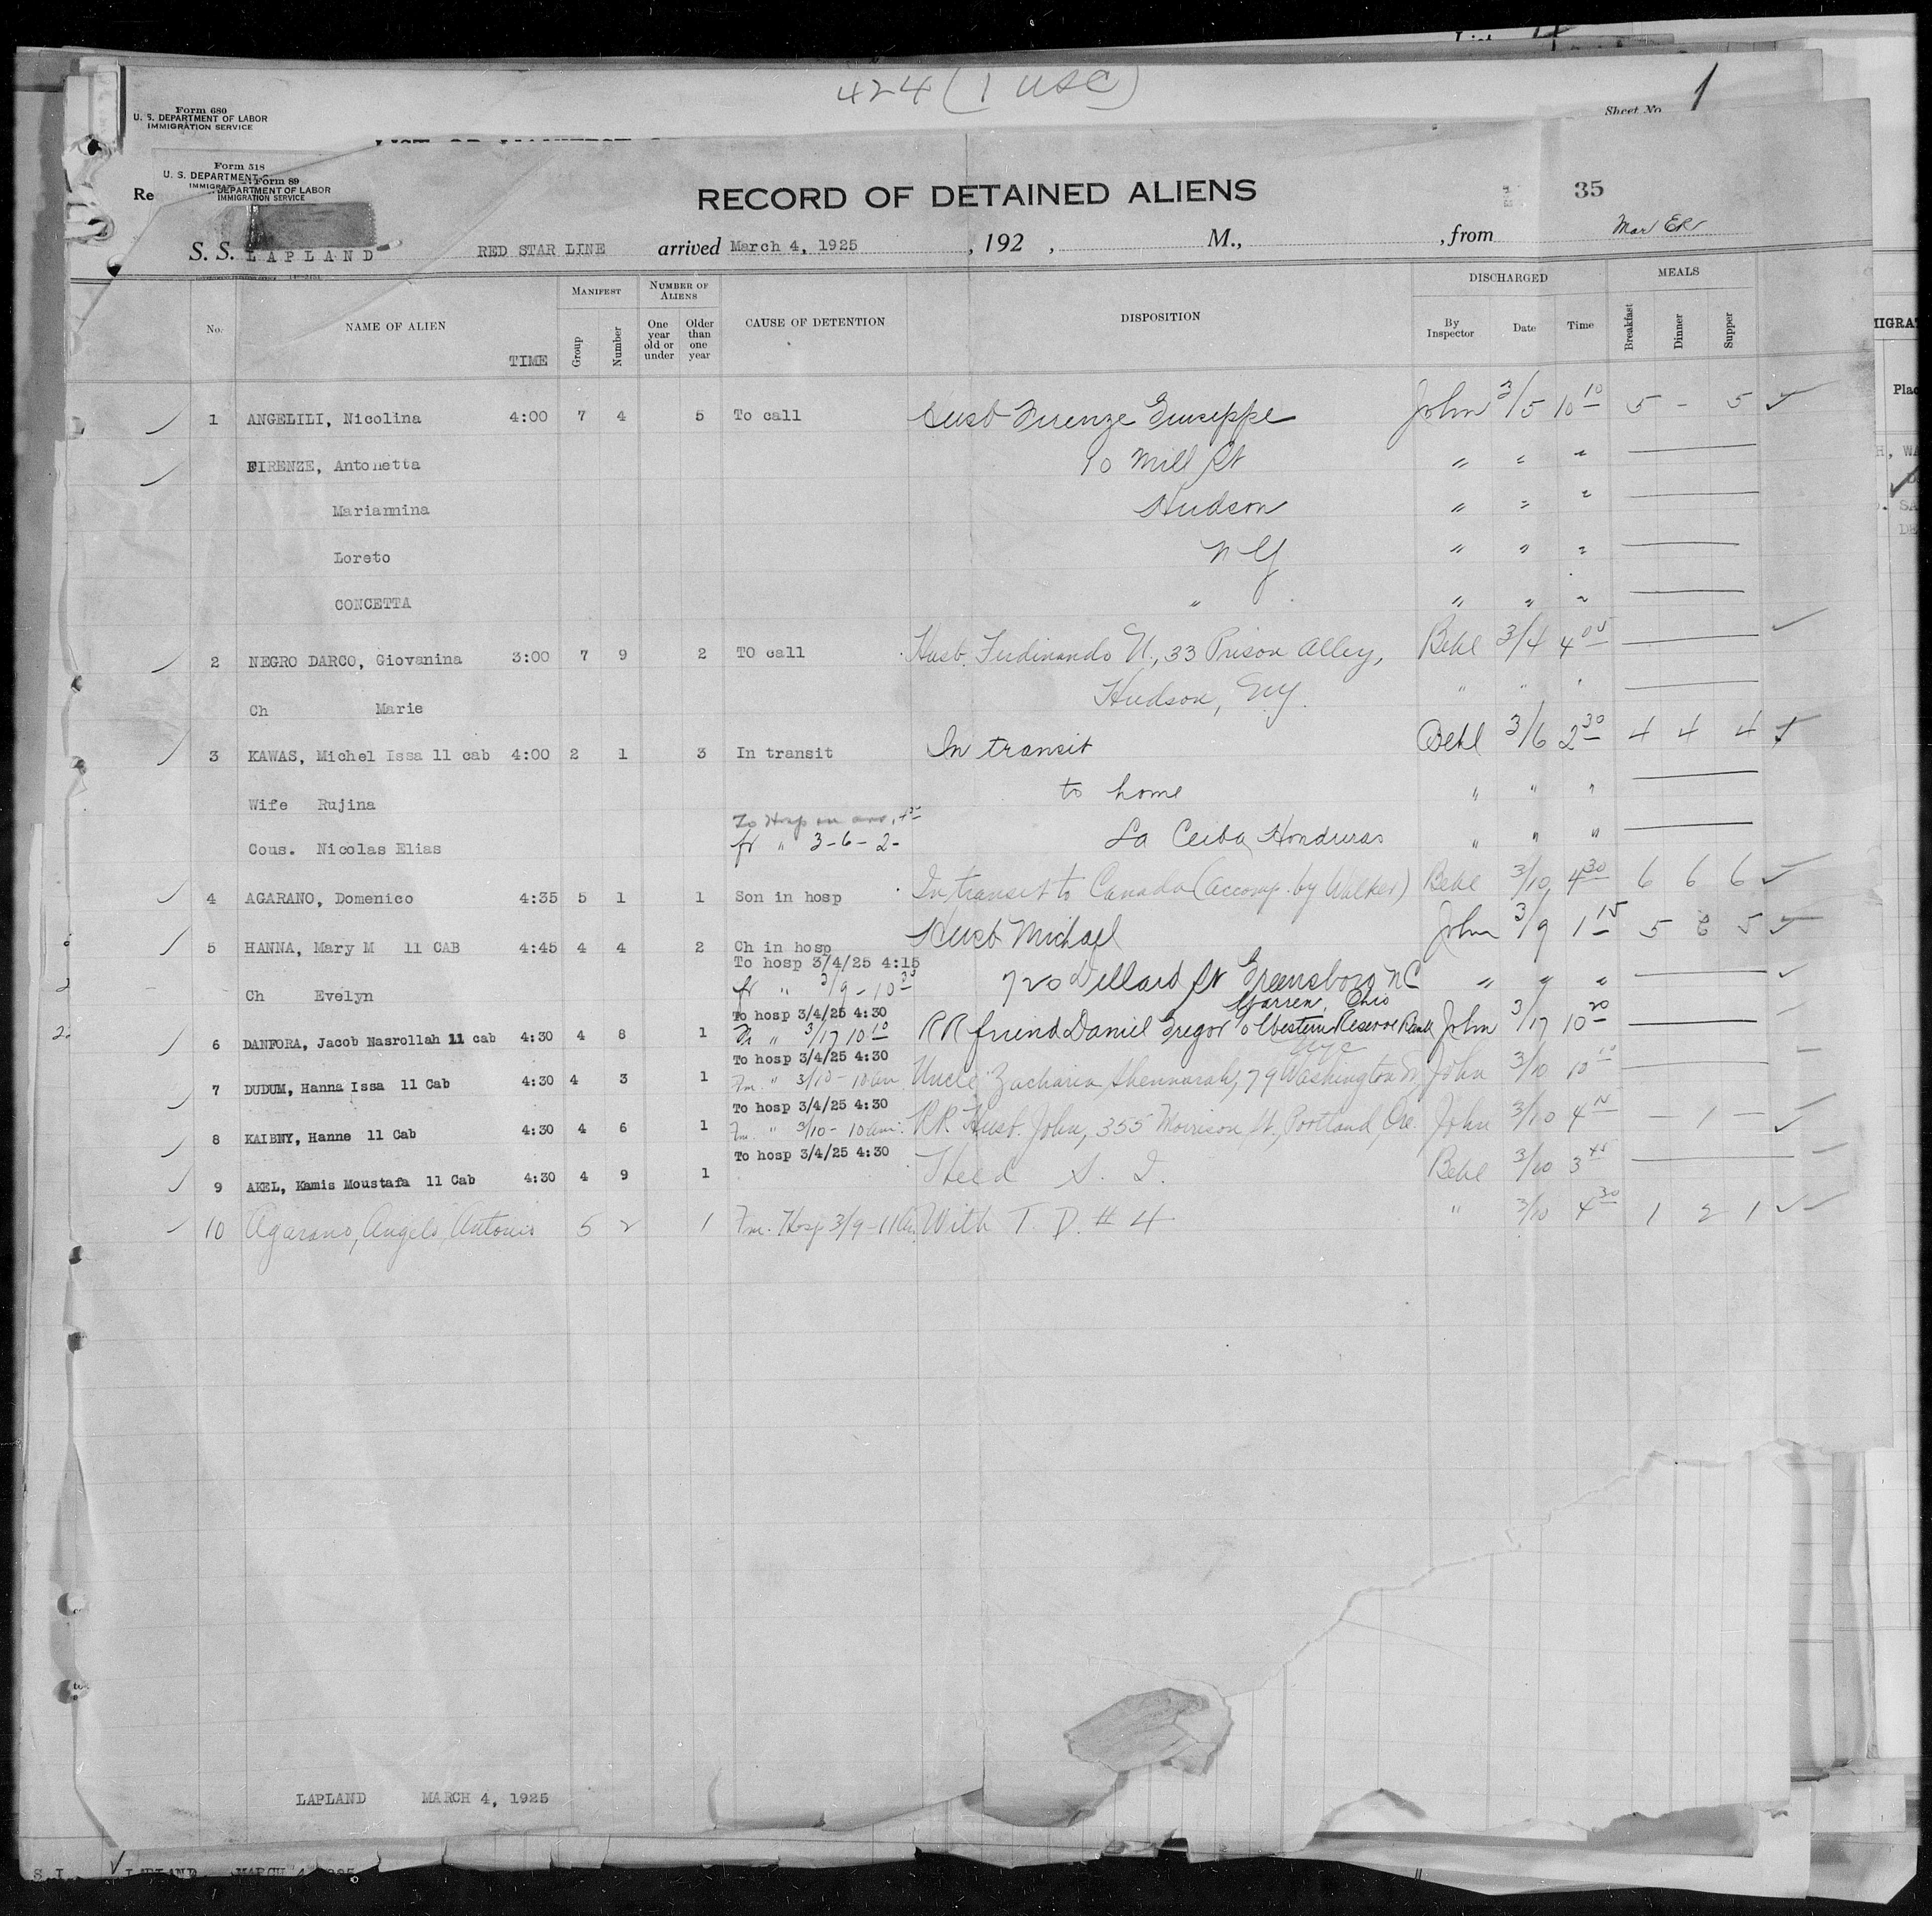 424 (1 USC)
Form 680
U. S. DEPARTMENT OF LABOR
IMMIGRATION SERVICE
Sheet No. 1
Form 518
U. S. DEPARTMENT
Form 89
DEPARTMENT OF LABOR
IMMIGRATION SERVICE
RECORD OF DETAINED ALIENS
35
S. S. LAPLAND RED STAR LINE arrived March 4, 1925, 192 , M., , from
No. NAME OF ALIEN TIME MANIFEST Group Number NUMBER OF ALIENS One year old or under Older than one year CAUSE OF DETENTION DISPOSITION DISCHARGED By Inspector Date Time MEALS Breakfast Dinner Supper
1 ANGELILI, Nicolina 4:00 7 4 5 To call Husb Firenze Guiseppe John 3/5 10 10 5 - 5
FIRENZE, Antonetta 10 Mill St " " "
Mariannina Hudson " " "
Loreto N Y " " "
CONCETTA " " " "
2 NEGRO DARCO, Giovanina 3:00 7 9 2 TO call Husb. Ferdinando N., 33 Prison Alley, Behl 3/4 4 05
Ch Marie Hudson, N.Y. " " "
3 KAWAS, Michel Issa 11 cab 4:00 2 1 3 In transit In transit Behl 3/6 2 30 4 4 4
Wife Rujina to home " " "
To Hosp on arr.
Cous. Nicolas Elias fr " 3-6-2- La Ceiba Honduras " " "
4 AGARANO, Domenico 4:35 5 1 1 Son in hosp In transit to Canada (accomp. by Walker) Behl 3/10 4 30 6 6 6
5 HANNA, Mary M 11 CAB 4:45 4 4 2 Ch in hosp Husb Michael John 3/9 1 15 5 6 5
To hosp 3/4/25 4:15
Ch Evelyn fr " 3/9 - 10 720 Dillard St Greensboro NC " " "
To hosp 3/4/25 4:30 Warren, Ohio
6 DANFORA, Jacob Nasrollah 11 cab 4:30 4 8 1 " 3/17 10 10 RR friend Daniel Gregor Western Reserve Bank John 3/17 10 20
To hosp 3/4/25 4:30 NYC
7 DUDUM, Hanna Issa 11 Cab 4:30 4 3 1 Fm. " 3/10 - 10 am Uncle Zacharia Shennarah, 79 Washington St John 3/10 10 10
To hosp 3/4/25 4:30
8 KAIBNY, Hanne 11 Cab 4:30 4 6 1 Fm. " 3/10 - 10 am. RR Husb. John, 355 Morrison St., Portland, Ore. John 3/10 4 - 1 -
To hosp 3/4/25 4:30
9 AKEL, Kamis Moustafa 11 Cab 4:30 4 9 1 Held S. I. Behl 3/10 3 45
10 Agarano, Angelo Antonio 5 2 1 Fm. Hosp 3/9 - 11 a. With T. D. # 4 " 3/10 4 30 1 2 1
LAPLAND MARCH 4, 1925
S I LAPLAND MARCH 4 1925